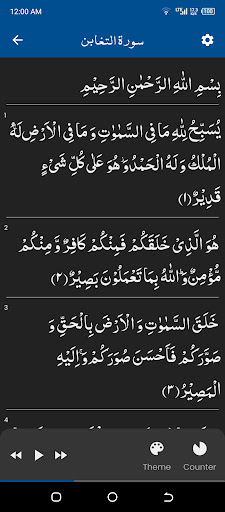 12:00 AM
سورة التغابن
بِسْمِ اللهِ الرَّحْمٰنِ الرَّحِيْمِ
1
يُسَبِّحُ لِلّٰهِ مَا فِى السَّمٰوٰتِ وَ مَا فِى الْاَرْضِ لَهُ
الْمُلْكُ وَ لَهُ الْحَمْدُ وَ هُوَ عَلٰى كُلِّ شَیْءٍ
قَدِيْرٌ (١)
2
هُوَ الَّذِىْ خَلَقَكُمْ فَمِنْكُمْ كَافِرٌ وَّ مِنْكُمْ
مُّؤْمِنٌ وَ اللّٰهُ بِمَا تَعْمَلُوْنَ بَصِيْرٌ (٢)
3
خَلَقَ السَّمٰوٰتِ وَ الْاَرْضَ بِالْحَقِّ وَ
صَوَّرَكُمْ فَاَحْسَنَ صُوَرَكُمْ وَ اِلَيْهِ
الْمَصِيْرُ (٣)
4
يَعْلَمُ مَا فِى السَّمٰوٰتِ وَ الْاَرْضِ وَ
Theme
Counter